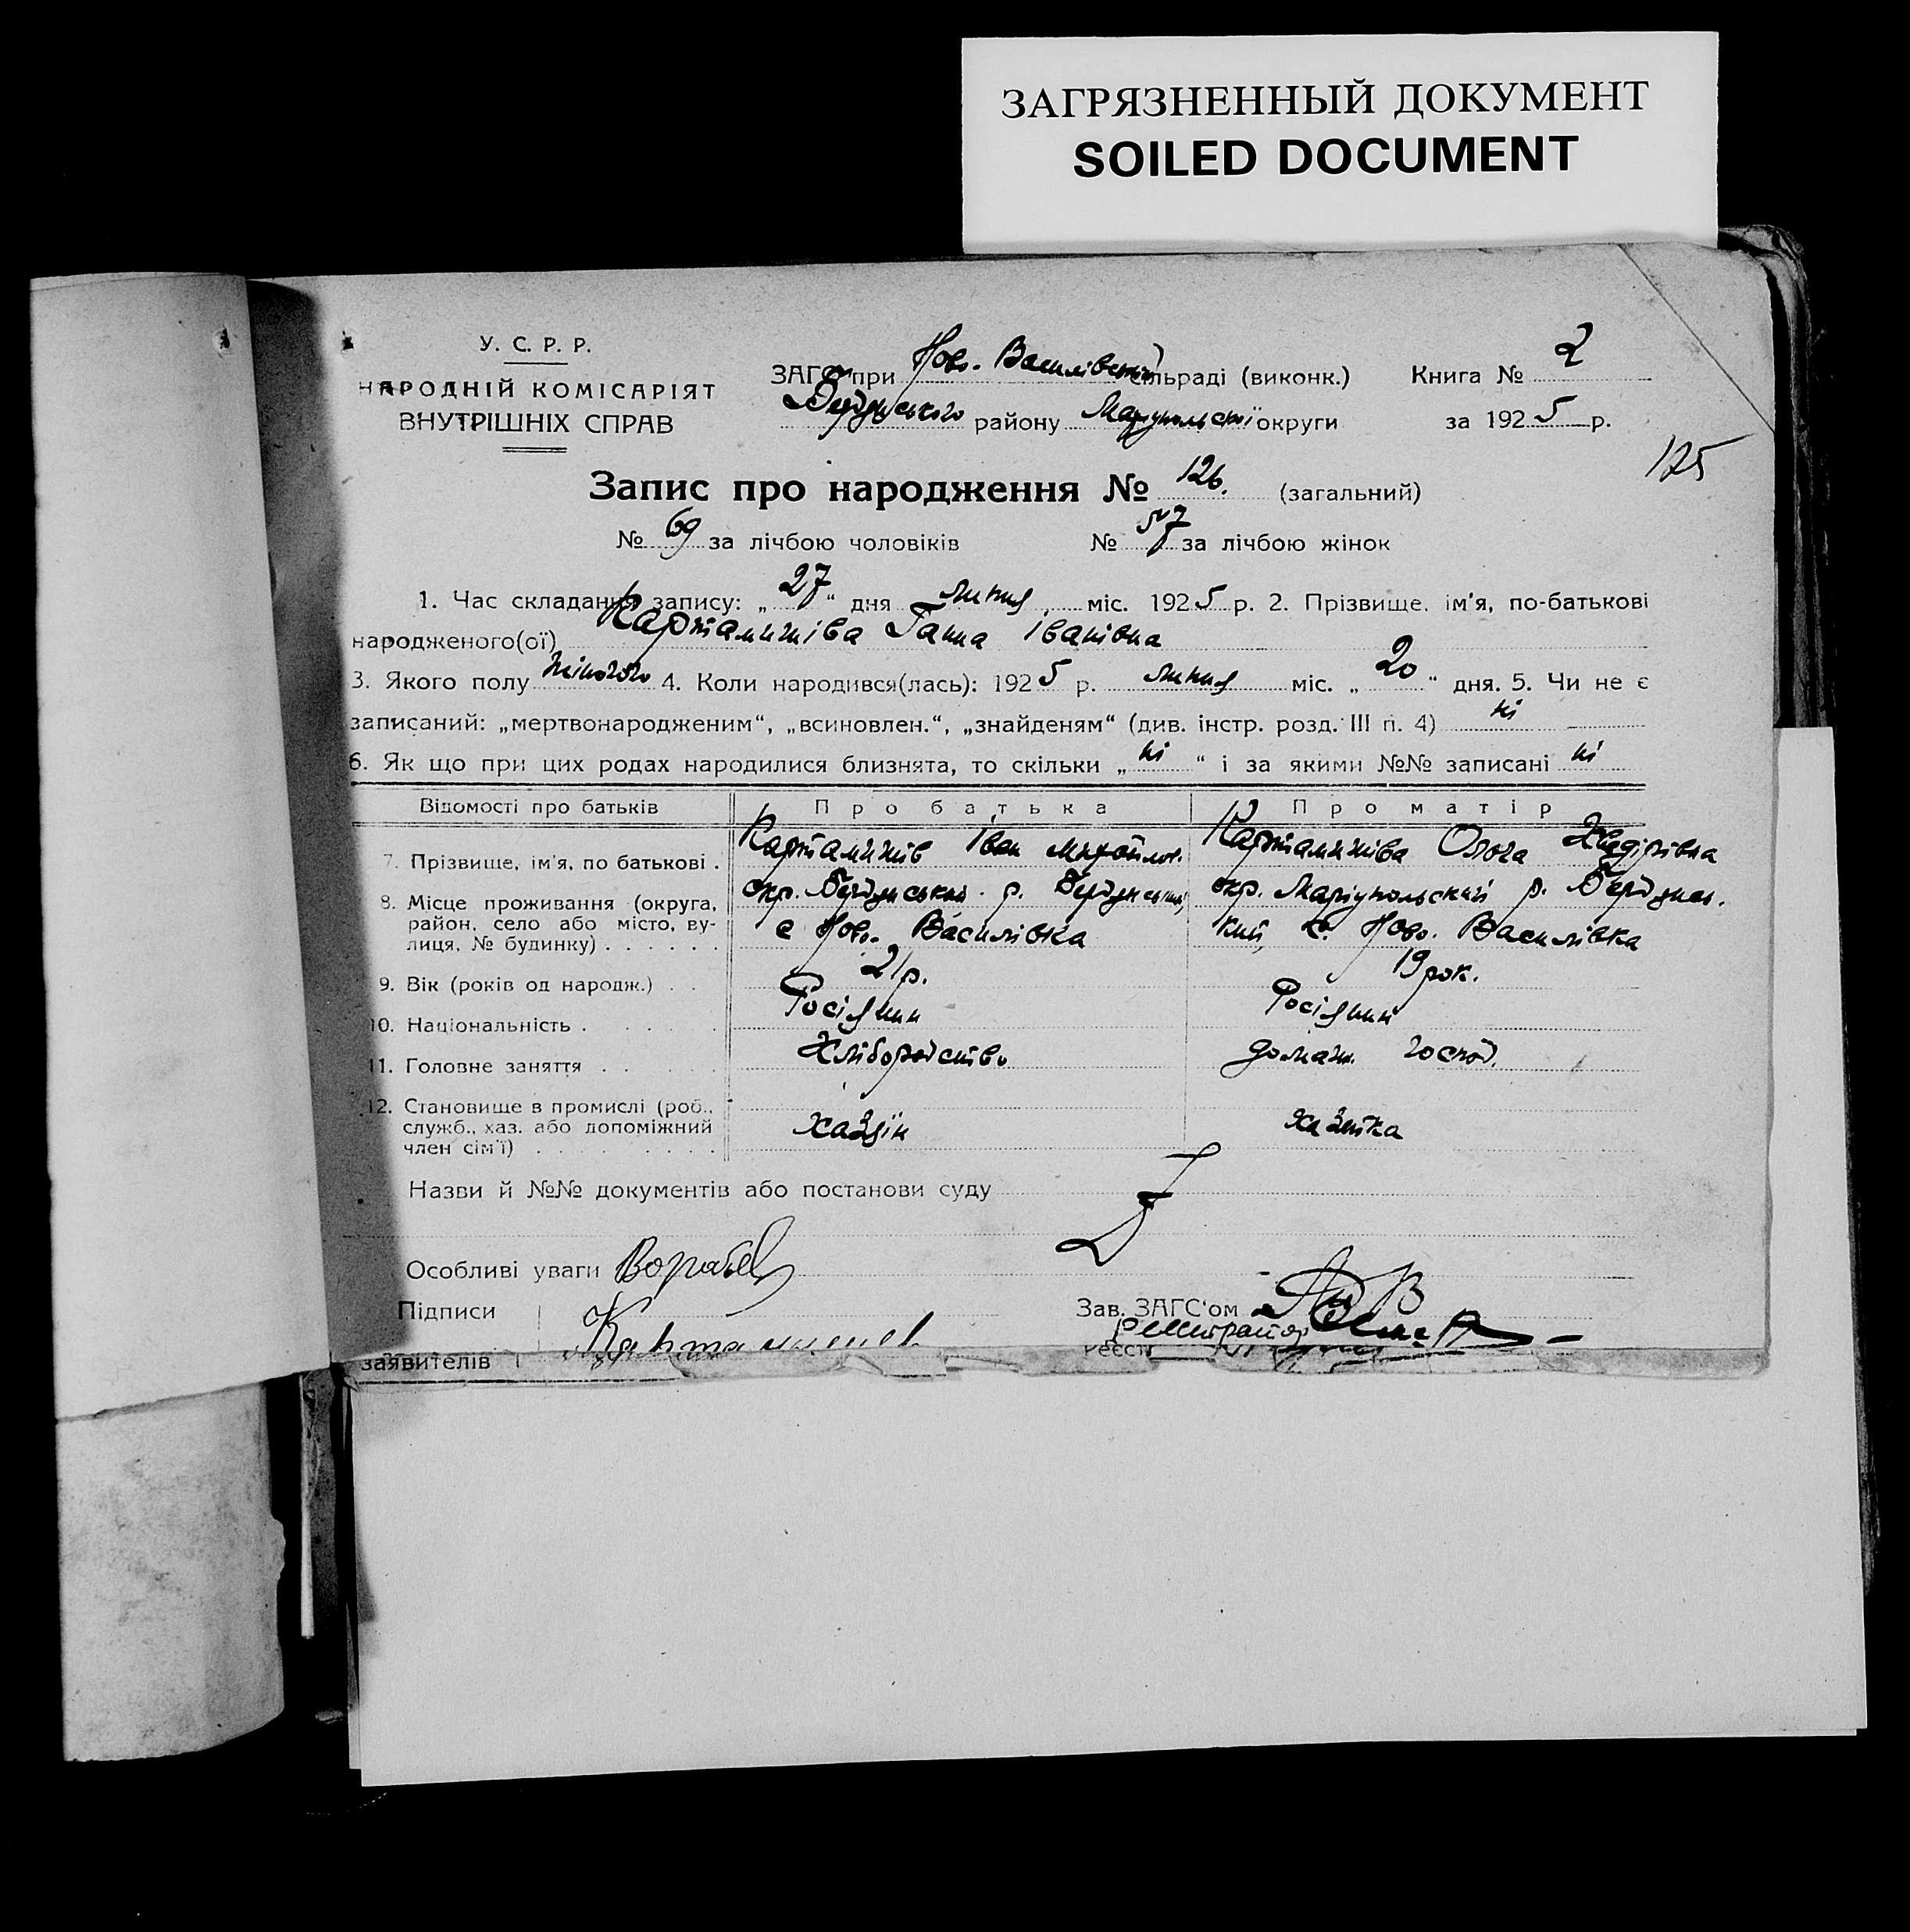 ЗАГРЯЗНЕННЫЙ ДОКУМЕНТ
SOILED DOCUMENT
У. С. Р. Р.
НАРОДНІЙ КОМІСАРІЯТ
ВНУТРІШНІХ СПРАВ
ЗАГС при Ново-Василівській сільраді (виконк.)
Бердянського району Маріупольскої округи
Книга № 2
за 1925 р.
125
Запис про народження № 126. (загальний)
№ 69 за лічбою чоловіків № 57 за лічбою жінок
1. Час складання запису: „27“ дня липня міс. 1925 р. 2. Прізвище, ім'я, по-батькові
народженого(ої) Картамишіва Ганна Іванівна
3. Якого полу жіночого 4. Коли народився(лась): 1925 р. липня міс. „20“ дня. 5. Чи не є
записаний: „мертвонародженим“, „всиновлен.“, „знайденям“ (див. інстр. розд. III п. 4) ні
6. Як що при цих родах народилися близнята, то скільки „ні“ і за якими №№ записані ні
Відомості про батьків Про батька Про матір
7. Прізвище, ім'я, по батькові . Картамишів Іван Михайлов. Картамишіва Ольга
8. Місце проживання (округа, район, село або місто, вулиця, № будинку) . . . . . .
окр. Бердянський р. Бердянський
с Ново-Василівка
окр. Маріупольский р. Бердянс.
кий, с. Ново-Василівка
9. Вік (років од народж.) . . 21 р. 19 рок.
10. Національність . . . . Росіянин Росіянин
11. Головне заняття . . . . Хліборобство домаш. господ.
12. Становище в промислі (роб.,
служб., хаз. або допоміжний
член сім'ї) . . . . . . . . . хазяін хазяйка
Назви й №№ документів або постанови суду
Особливі уваги
Підписи
заявителів
Зав. ЗАГС'ом
Реєстр